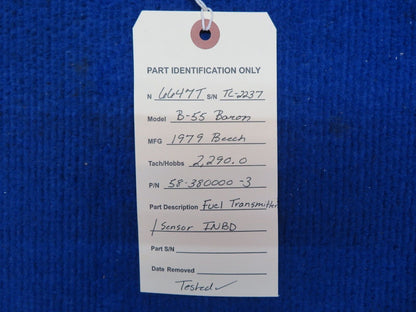 PART IDENTIFICATION ONLY
N 6647T S/N TC-2237
Model B-55 Baron
MFG 1979 Beech
Tach/Hobbs 2,290.0
P/N 58-380000-3
Part Description Fuel Transmitter
/ Sensor INBD
Part S/N
Date Removed
Tested ✓